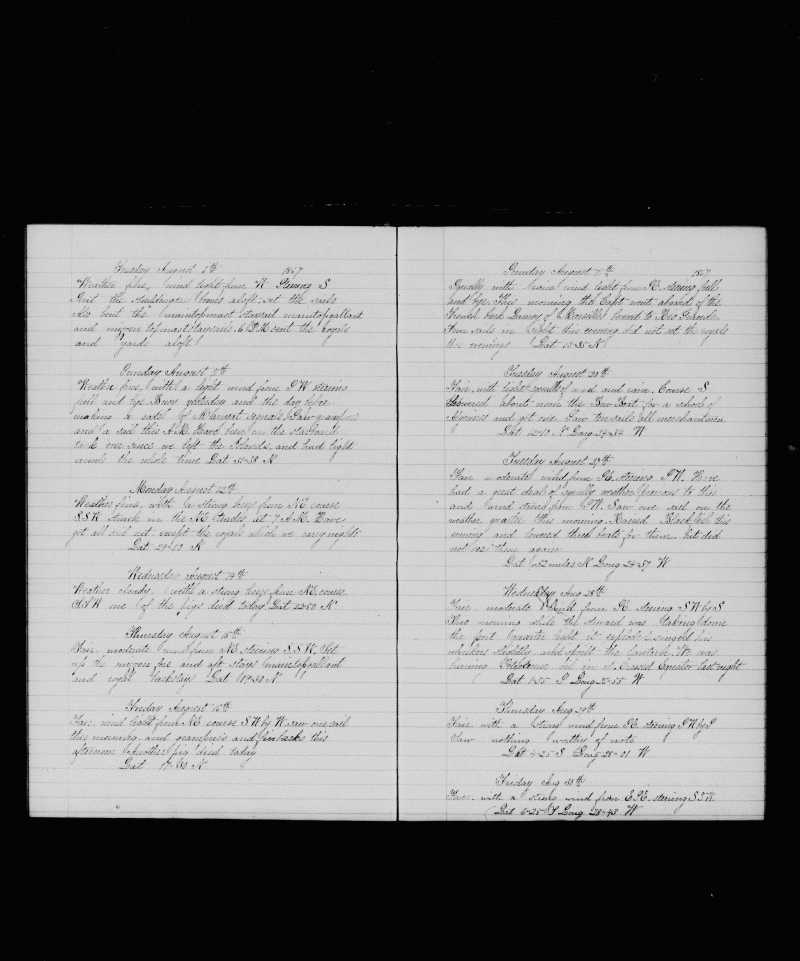 Tuesday August 6th 1867
Weather fine, wind light from W. Steering S
Sent the Studdingsail booms aloft, set the sails
Also bent the maintopmast staysail maintopgallant
and mizzen topmast staysails. 6 P.M. sent the royals
and yards aloft
Sunday August 11th
Weather fine, with a light wind from SW steering
full and bye. Busy yesterday and the day before
making a sail. Saw grampuses
and a sail this A.M. Have been on the starboard
tack ever since we left the Islands, and had light
winds the whole time Lat 31-38 N
Monday August 12th
Weather fine, with a strong breeze from NE course
SSW Struck in the NE trades at 7 A.M. Have
got all sail out except the royals which we carry nights
Lat 29-53 N
Wednesday August 14th
Weather cloudy, with a strong breeze from NE course
one of the pigs died today Lat 22-50 N
Thursday August 15th
Fair, moderate wind from NE steering SSW. Set
up the mizzen fore and aft stays, maintopgallant
and royal backstays Lat 19-30 N
Friday August 16th
Fair, wind light from NE course SW by W saw one sail
this morning, and grampuses and finbacks this
afternoon. Another pig died today
Lat 17-30 N
Sunday August 1867
Squally with rain wind light from steering full
and bye. This morning the Capt went aboard of the
French bark of Marseilles bound to Rio Grande.
sails in sight this evening did not set the royals
this evening Lat 13-35 N
Tuesday August 20th
Fair, with light squalls of wind and rain. Course S
Lowered about noon the Bow Boat for a school of
and got one. Saw ten sails all merchantmen
Lat 12-10 N Long 24-34 W
Tuesday August 27th
Fair, moderate wind from SE steering SW. Have
had a great deal of squally weather previous to this
and wind strong from SW. Saw one sail on the
weather quarter this morning. Raised Blackfish this
evening and lowered three boats for them, but did
not see them again
Lat 52 miles N Long 24-37 W
Wednesday Aug 28th
Fair, moderate wind from SE steering SW by S
This morning while the steward was taking down
the port quarter light it exploded, singed his
whiskers slightly and spoilt the lantern. We was
burning Petroleum oil in it. Crossed Equator last night
Lat 1-55 S Long 25-55 W
Thursday Aug 29th
Fair, with a strong wind from SE steering SW by S
Saw nothing worthy of note
Lat 4-25 S Long 28-01 W
Friday Aug 30th
Fair, with a strong wind from ESE steering
Lat 6-25 S Long 28-48 W